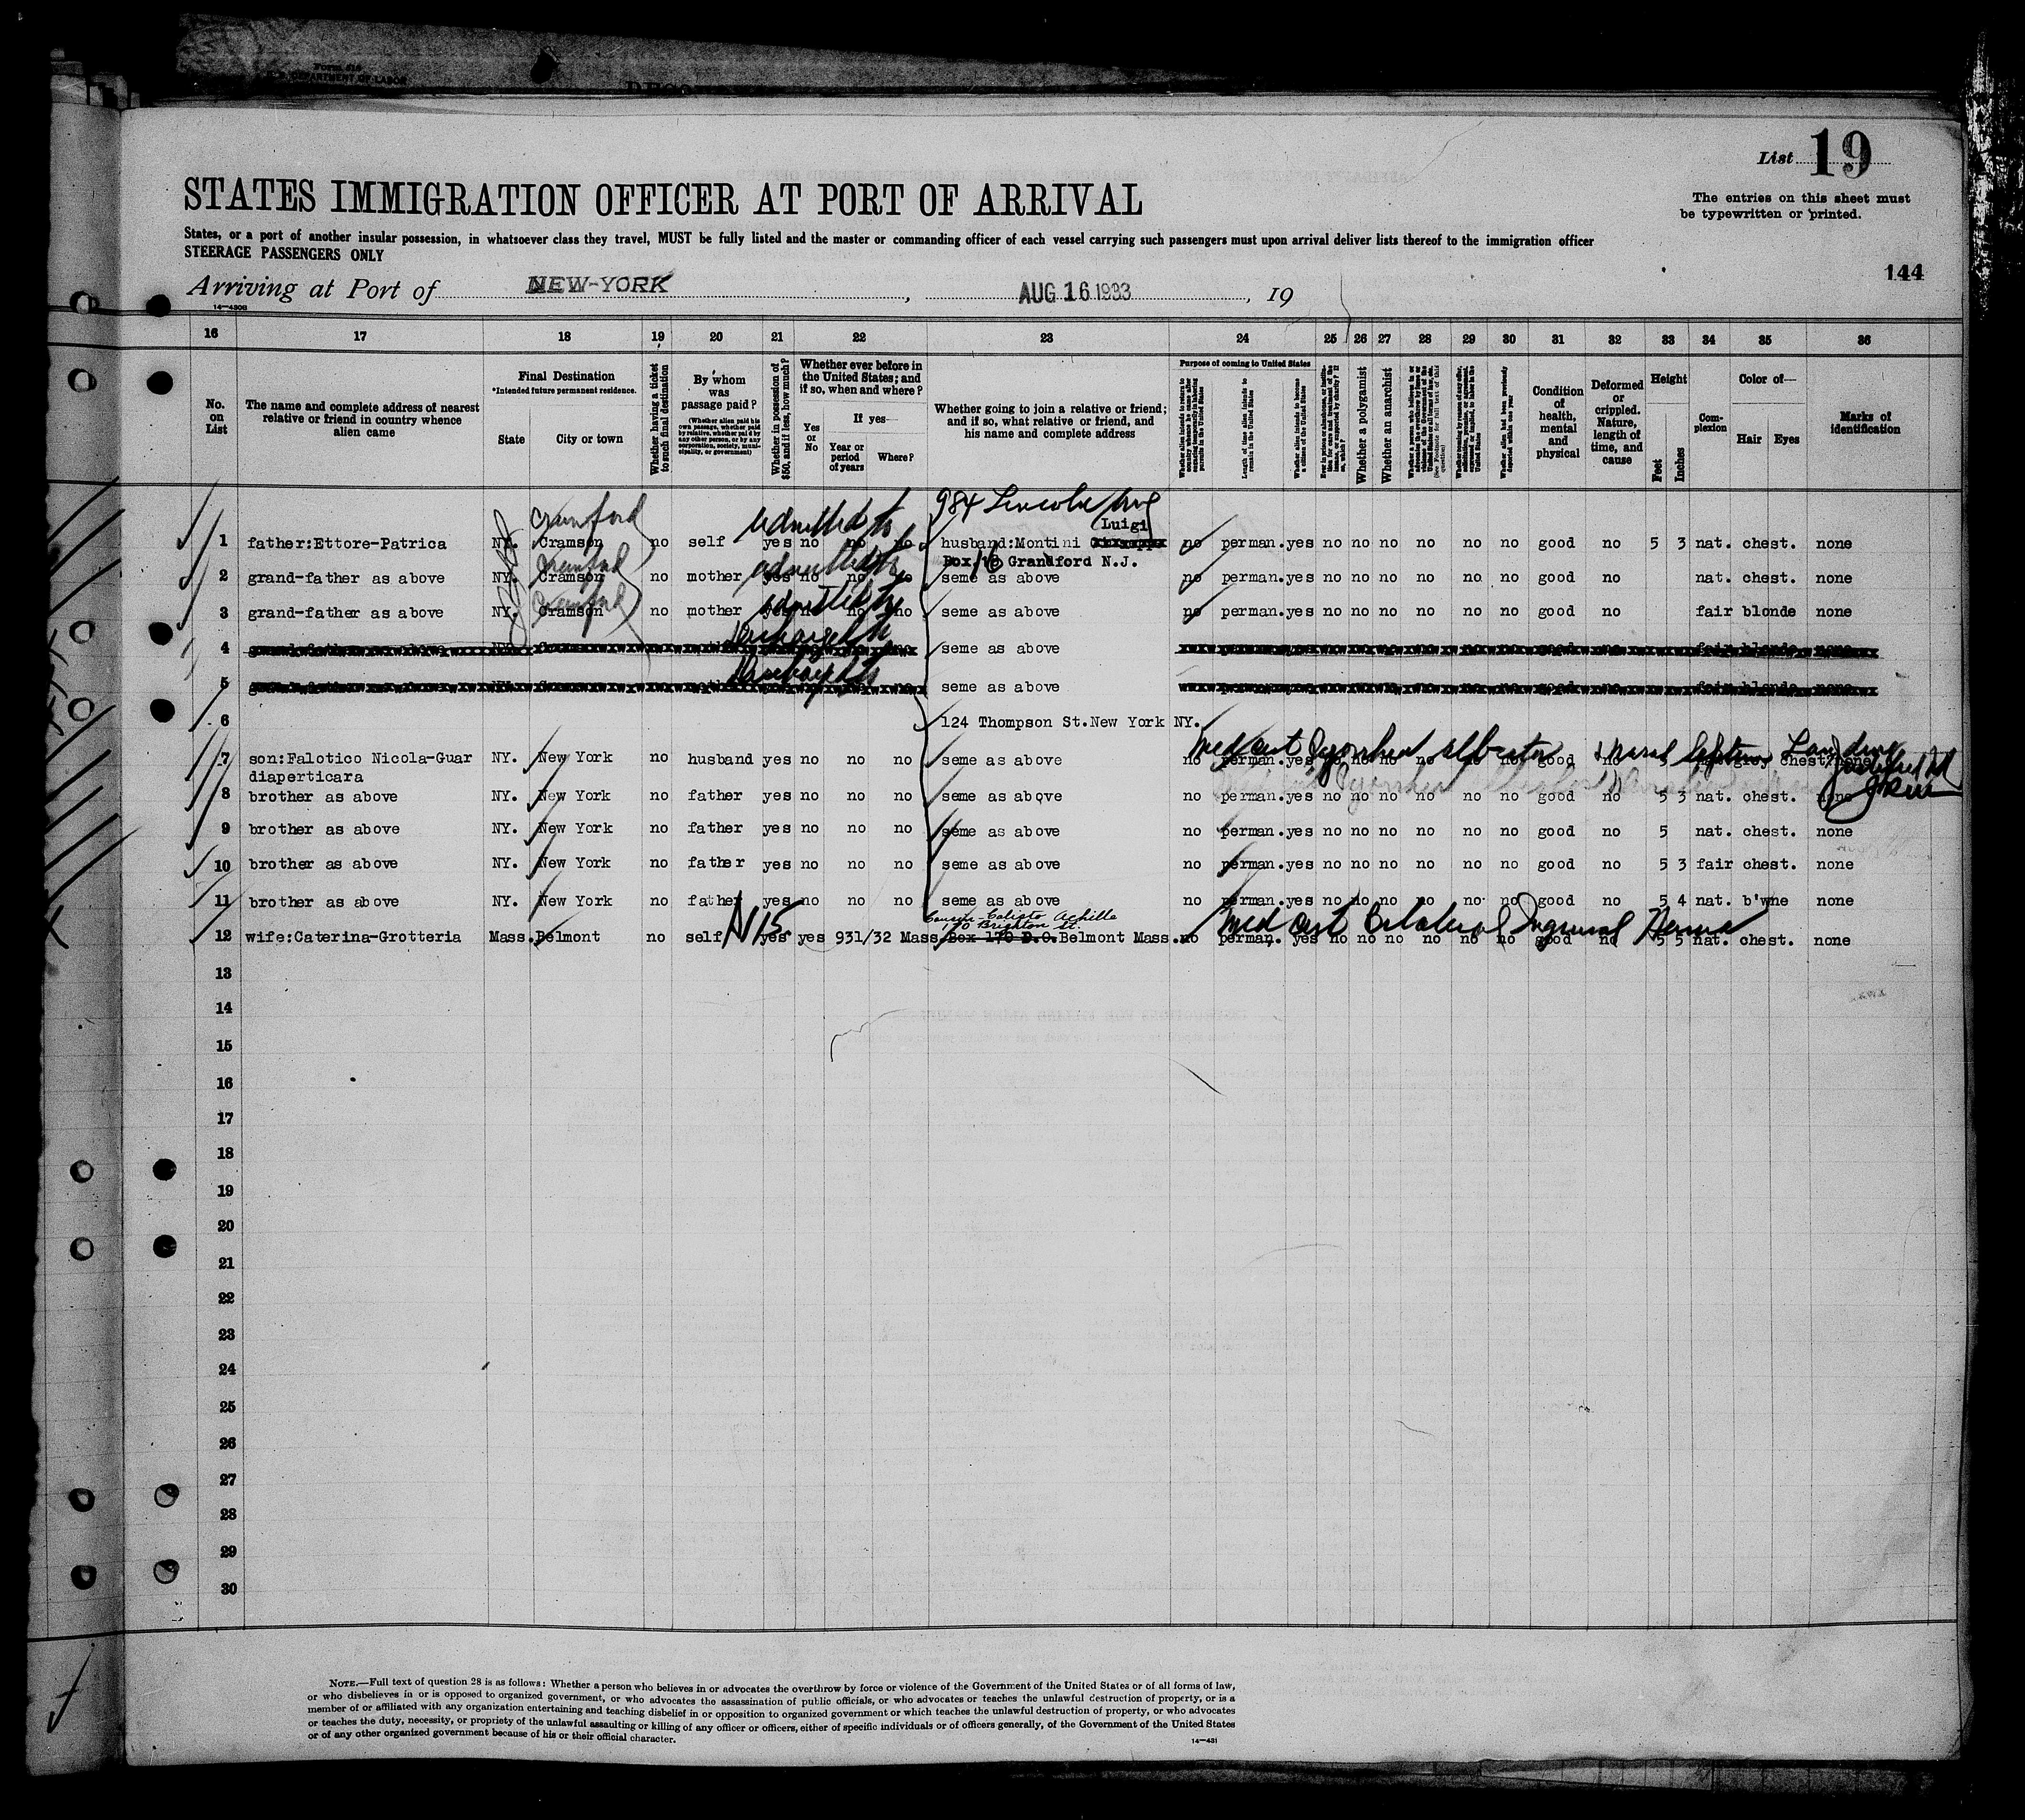 Form 
DEPARTMENT OF LABOR
List 19
STATES IMMIGRATION OFFICER AT PORT OF ARRIVAL
The entries on this sheet must
be typewritten or printed.
States, or a port of another insular possession, in whatsoever class they travel, MUST be fully listed and the master or commanding officer of each vessel carrying such passengers must upon arrival deliver lists thereof to the immigration officer
STEERAGE PASSENGERS ONLY
144
Arriving at Port of NEW-YORK, AUG 16 1933, 19
16 17 18 19 20 21 22 23 24 25 26 27 28 29 30 31 32 33 34 35 36
No. on List
The name and complete address of nearest relative or friend in country whence alien came
Final Destination
*Intended future permanent residence.
State
City or town
Whether having a ticket to such final destination
By whom was passage paid?
(Whether alien paid his own passage, whether paid by relative, whether paid by any other person, or by any corporation, society, municipality, or government)
Whether in possession of $50, and if less, how much?
Whether ever before in the United States; and if so, when and where?
Yes or No
If yes—
Year or period of years
Where?
Whether going to join a relative or friend; and if so, what relative or friend, and his name and complete address
Purpose of coming to United States
Length of time alien intends to remain in the United States
Whether alien intends to become a citizen of the United States
Whether a polygamist
Whether an anarchist
Condition of health, mental and physical
Deformed or crippled. Nature, length of time, and cause
Height
Feet
Inches
Complexion
Color of—
Hair
Eyes
Marks of identification
984 Lincoln Ave
Crawford admitted Luigi
1 father:Ettore-Patrica NY. Cramson no self yes no no no husband:Montini no perman. yes no no no no no no good no 5 3 nat. chest. none
Crawford admitted Box 16 Grandford N.J.
2 grand-father as above NY. Cramson no mother yes no no no seme as above no perman. yes no no no no no no good no nat. chest. none
Crawford admitted
3 grand-father as above NY. Cramson no mother no no seme as above no perman. yes no no no no no no good no fair blonde none
4 seme as above fair blonde none
5 seme as above good no fair blonde none
6 124 Thompson St. New York NY.
Med cert
7 son:Falotico Nicola-Guar NY. New York no husband yes no no no seme as above no perman. yes no no no no no good
diaperticara
8 brother as above NY. New York no father yes no no no seme as above no perman. yes no no no no no no good no 5 3 nat. chest. none
9 brother as above NY. New York no father yes no no no seme as above no perman. yes no no no no no no good no 5 nat. chest. none
10 brother as above NY. New York no father yes no no no seme as above no perman. yes no no no no no no good no 5 3 fair chest. none
11 brother as above NY. New York no father yes no no no seme as above no perman. yes no no no no no no good no 5 4 nat. b'wne none
Cousin-Calisto Achille
170 Brighton St.
N15 Med Cert Bilateral Inguinal Hernia
12 wife:Caterina-Grotteria Mass. Belmont no self yes yes 931/32 Mass. Box 170 P.O. Belmont Mass. no perman. yes no no no no no no good no 5 5 nat. chest. none
13
14
15
16
17
18
19
20
21
22
23
24
25
26
27
28
29
30
NOTE.—Full text of question 28 is as follows: Whether a person who believes in or advocates the overthrow by force or violence of the Government of the United States or of all forms of law,
or who disbelieves in or is opposed to organized government, or who advocates the assassination of public officials, or who advocates or teaches the unlawful destruction of property, or is a
member of or affiliated with any organization entertaining and teaching disbelief in or opposition to organized government or which teaches the unlawful destruction of property, or who advocates
or teaches the duty, necessity, or propriety of the unlawful assaulting or killing of any officer or officers, either of specific individuals or of officers generally, of the Government of the United States
or of any other organized government because of his or their official character.
14—431